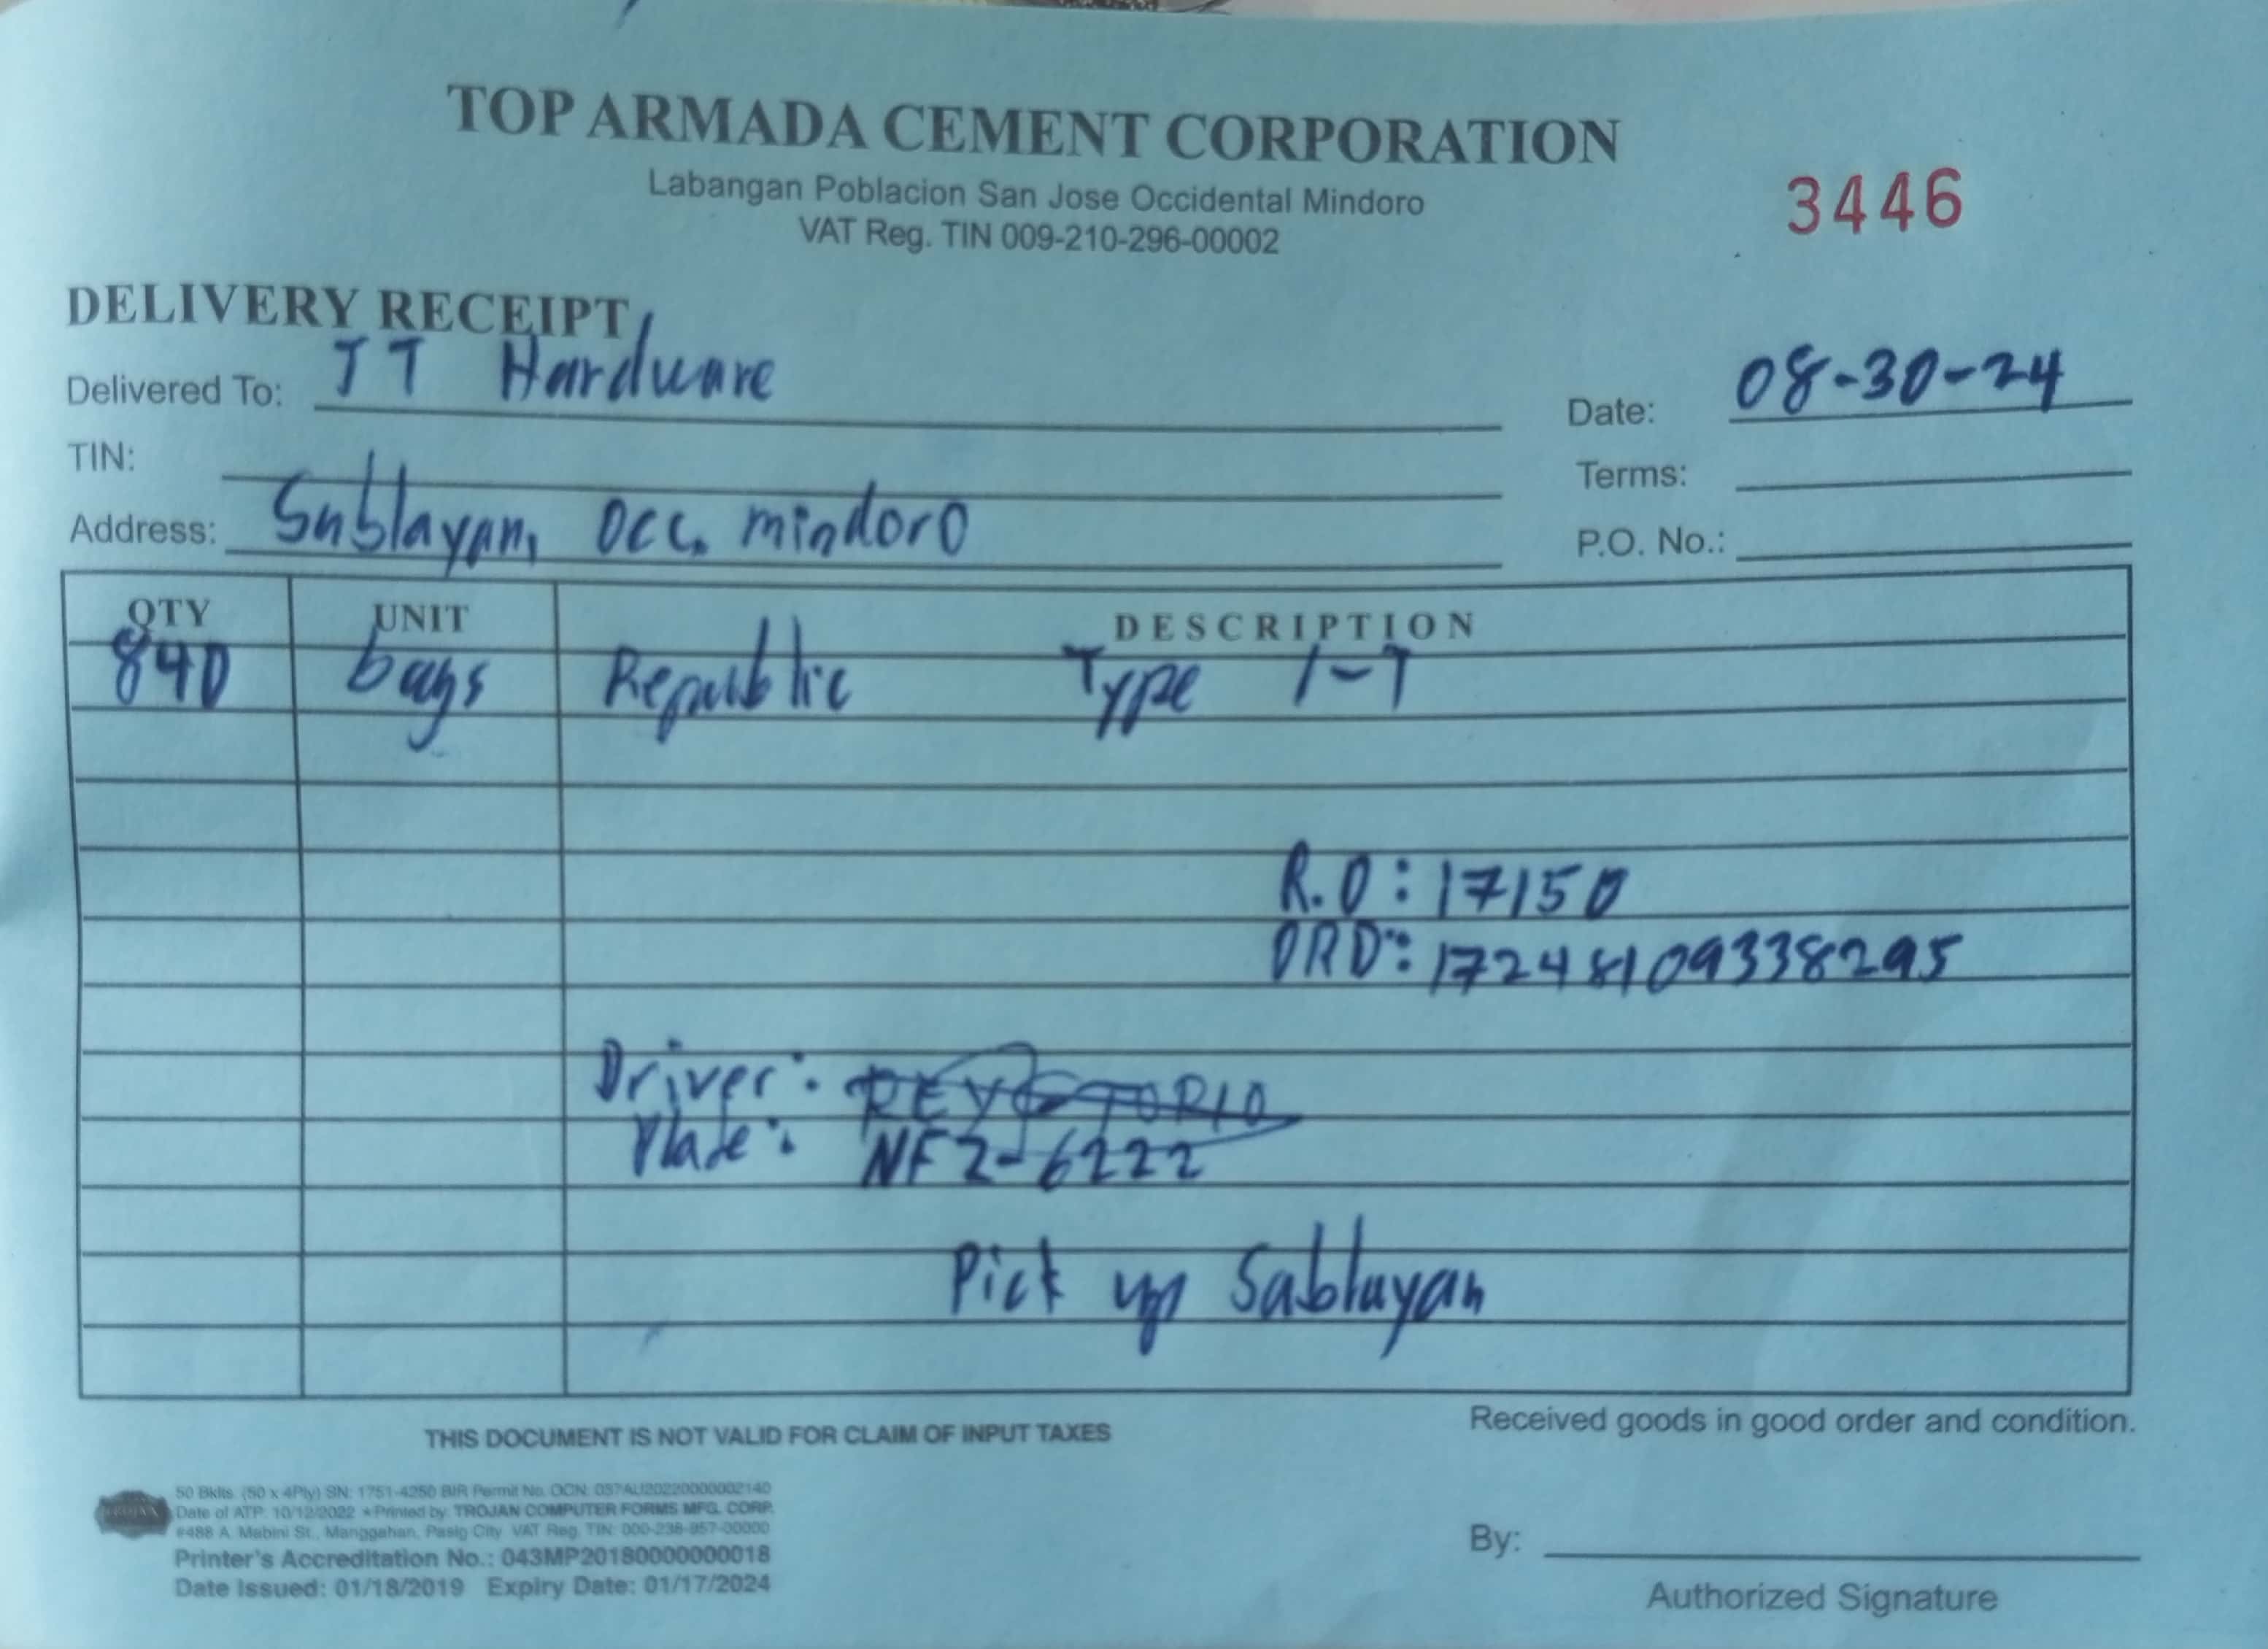 TOP ARMADA CEMENT CORPORATION
Labangan Poblacion San Jose Occidental Mindoro
VAT Reg. TIN 009-210-296-00002
3446
DELIVERY RECEIPT
Delivered To: JT Hardware
Date: 08-30-24
TIN:
Terms:
Address: Sablayan, Occ. Mindoro
P.O. No.:
QTY UNIT DESCRIPTION
840 bags Republic Type 1-T
R.O: 17150
ORD: 17248109338295
Driver: REY TORIO
Plate: NFZ-6222
Pick up Sablayan
THIS DOCUMENT IS NOT VALID FOR CLAIM OF INPUT TAXES
Received goods in good order and condition.
50 Bklts. (50 x 4Ply) SN: 1751-4250 BIR Permit No. OCN: 037AU20220000002140
Date of ATP: 10/12/2022 * Printed by: TROJAN COMPUTER FORMS MFG. CORP.
#488 A. Mabini St., Manggahan, Pasig City VAT Reg. TIN: 000-238-957-00000
Printer's Accreditation No.: 043MP20180000000018
Date Issued: 01/18/2019 Expiry Date: 01/17/2024
By:
Authorized Signature